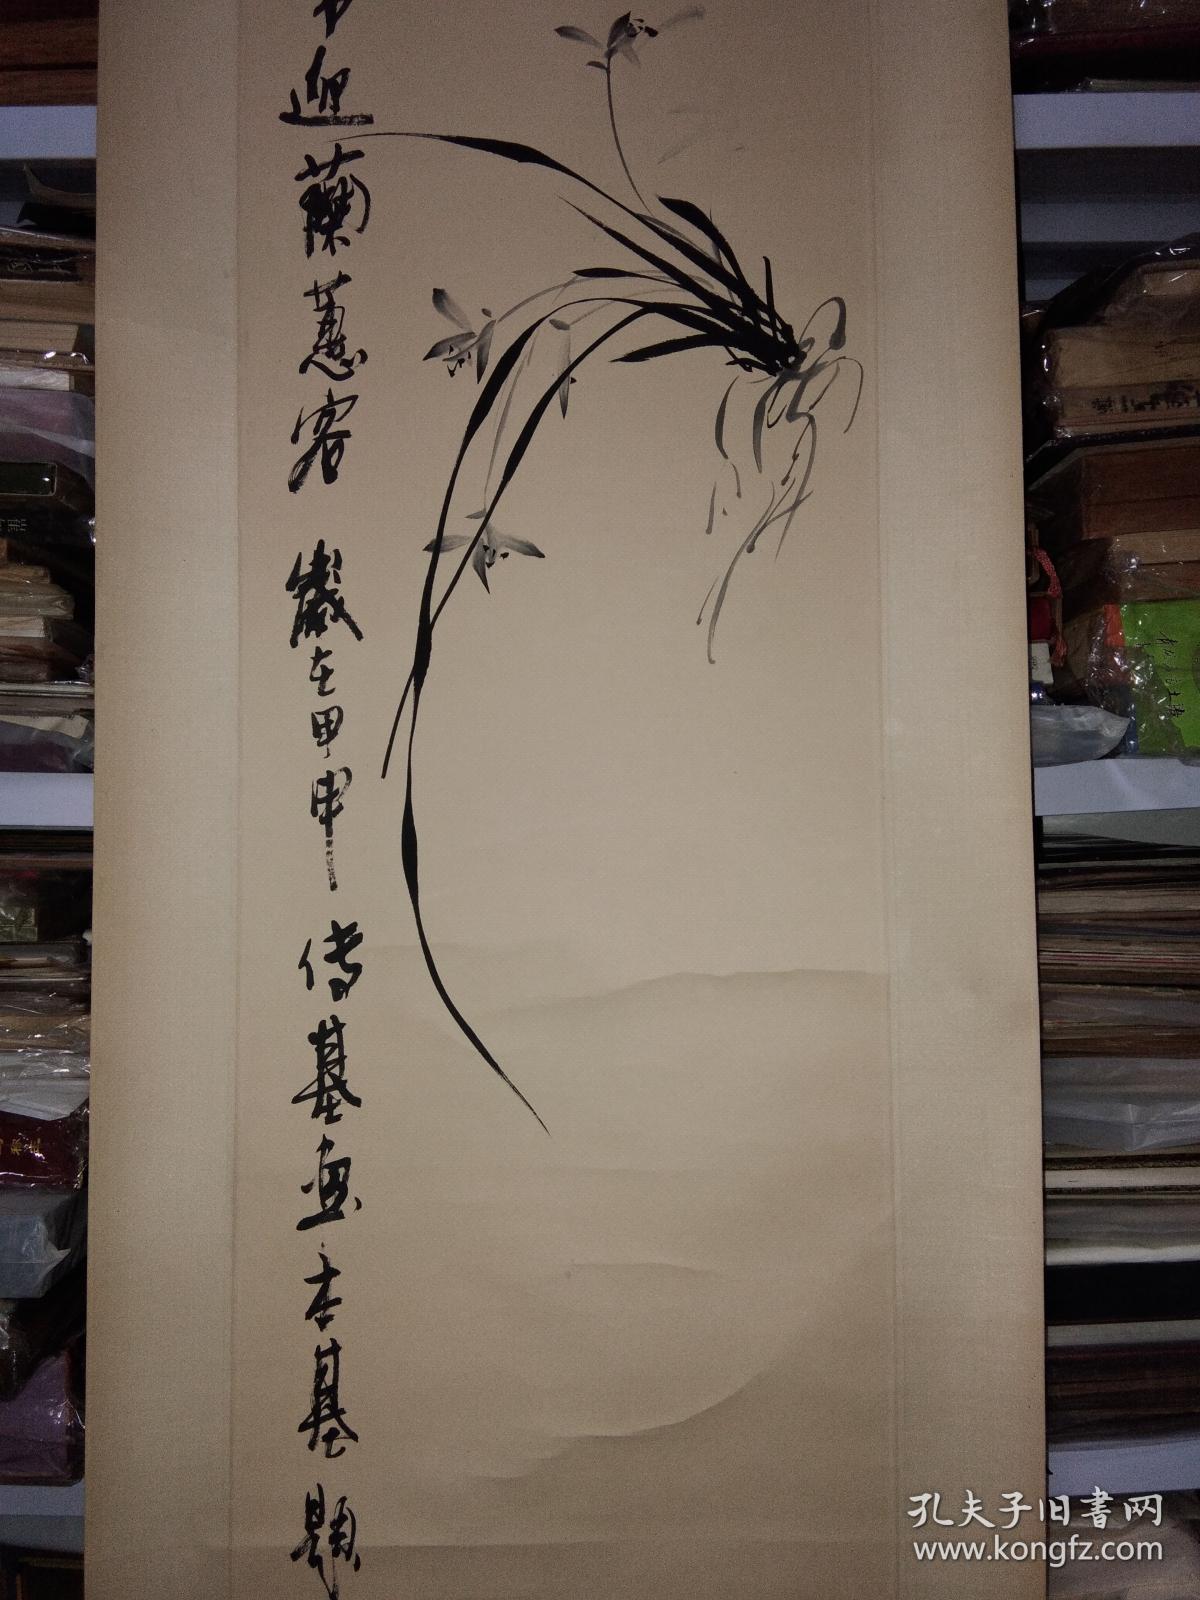 迎蘭蕙客 歲在甲申 傳基畫本基題
孔夫子旧书网
www.kongfz.com